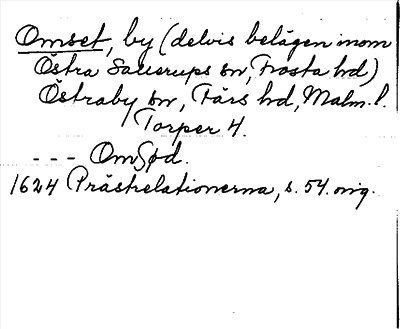 Omset, by (delvis belägen inom
Östra Sallerups sn, Frosta hd)
Östraby sn, Färs hd, Malm. l.
Torper 4.
--- Omsød.
1624 Prästrelationerna, s. 54. orig.